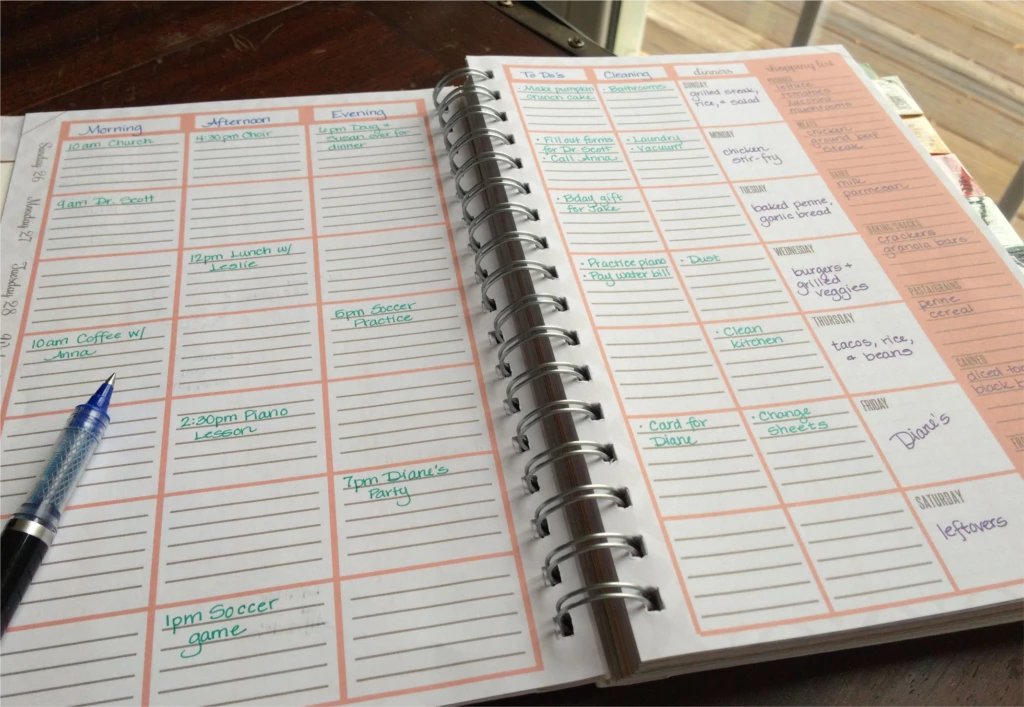 Morning
Afternoon
Evening
Sunday 26
10am Church
4:30pm Choir
6pm Doug +
Susan over for
dinner
Monday 27
9am Dr. Scott
Tuesday 28
12pm Lunch w/
Leslie
10am Coffee w/
Anna
5pm Soccer
Practice
2:30pm Piano
Lesson
7pm Diane's
Party
1pm Soccer
game
To Do's
Cleaning
dinners
shopping list
Make pumpkin
crunch cake
• Bathrooms
SUNDAY
grilled steak,
rice, + salad
• Fill out forms
for Dr. Scott
• Call Anna
• Laundry
• Vacuum
MONDAY
chicken
stir-fry
• Bday gift
for Jake
TUESDAY
baked penne,
garlic bread
• Practice piano
• Pay water bill
• Dust
WEDNESDAY
burgers +
grilled
veggies
• Clean
kitchen
THURSDAY
tacos, rice,
+ beans
• Card for
Diane
• Change
sheets
FRIDAY
Diane's
SATURDAY
leftovers
PRODUCE
lettuce
tomatoes
zucchini
mushrooms
MEATS
chicken
ground beef
steak
DAIRY
milk
parmesan
BAKING/SNACKS
crackers
granola bars
PASTA/GRAINS
penne
cereal
CANNED
diced
black